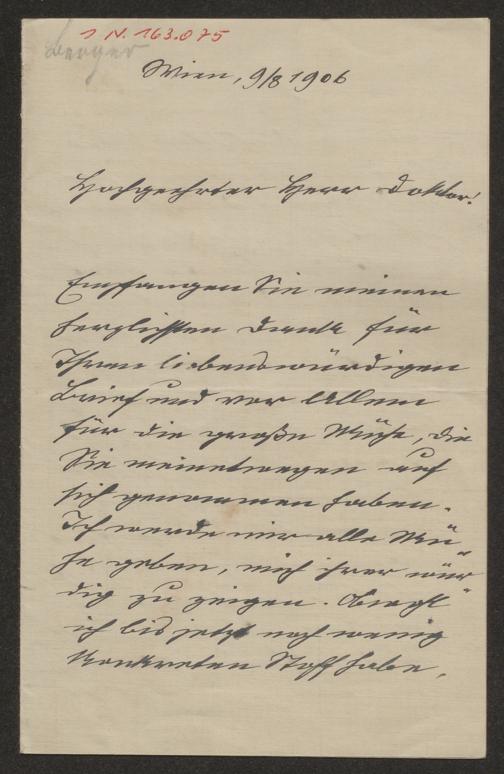 I N. 163.075
Berger
Wien, 9/8 1906
Hochgeehrter Herr Doktor!
Empfangen Sie meinen
herzlichsten Dank für
Ihren liebenswürdigen
Brief und vor Allem
für die große Mühe, die
Sie meinetwegen auf
sich genommen haben.
Ich werde mir alle Mü-
he geben, mich ihrer wür-
dig zu zeigen. Obwohl
ich bis jetzt noch wenig
konkreten Stoff habe,